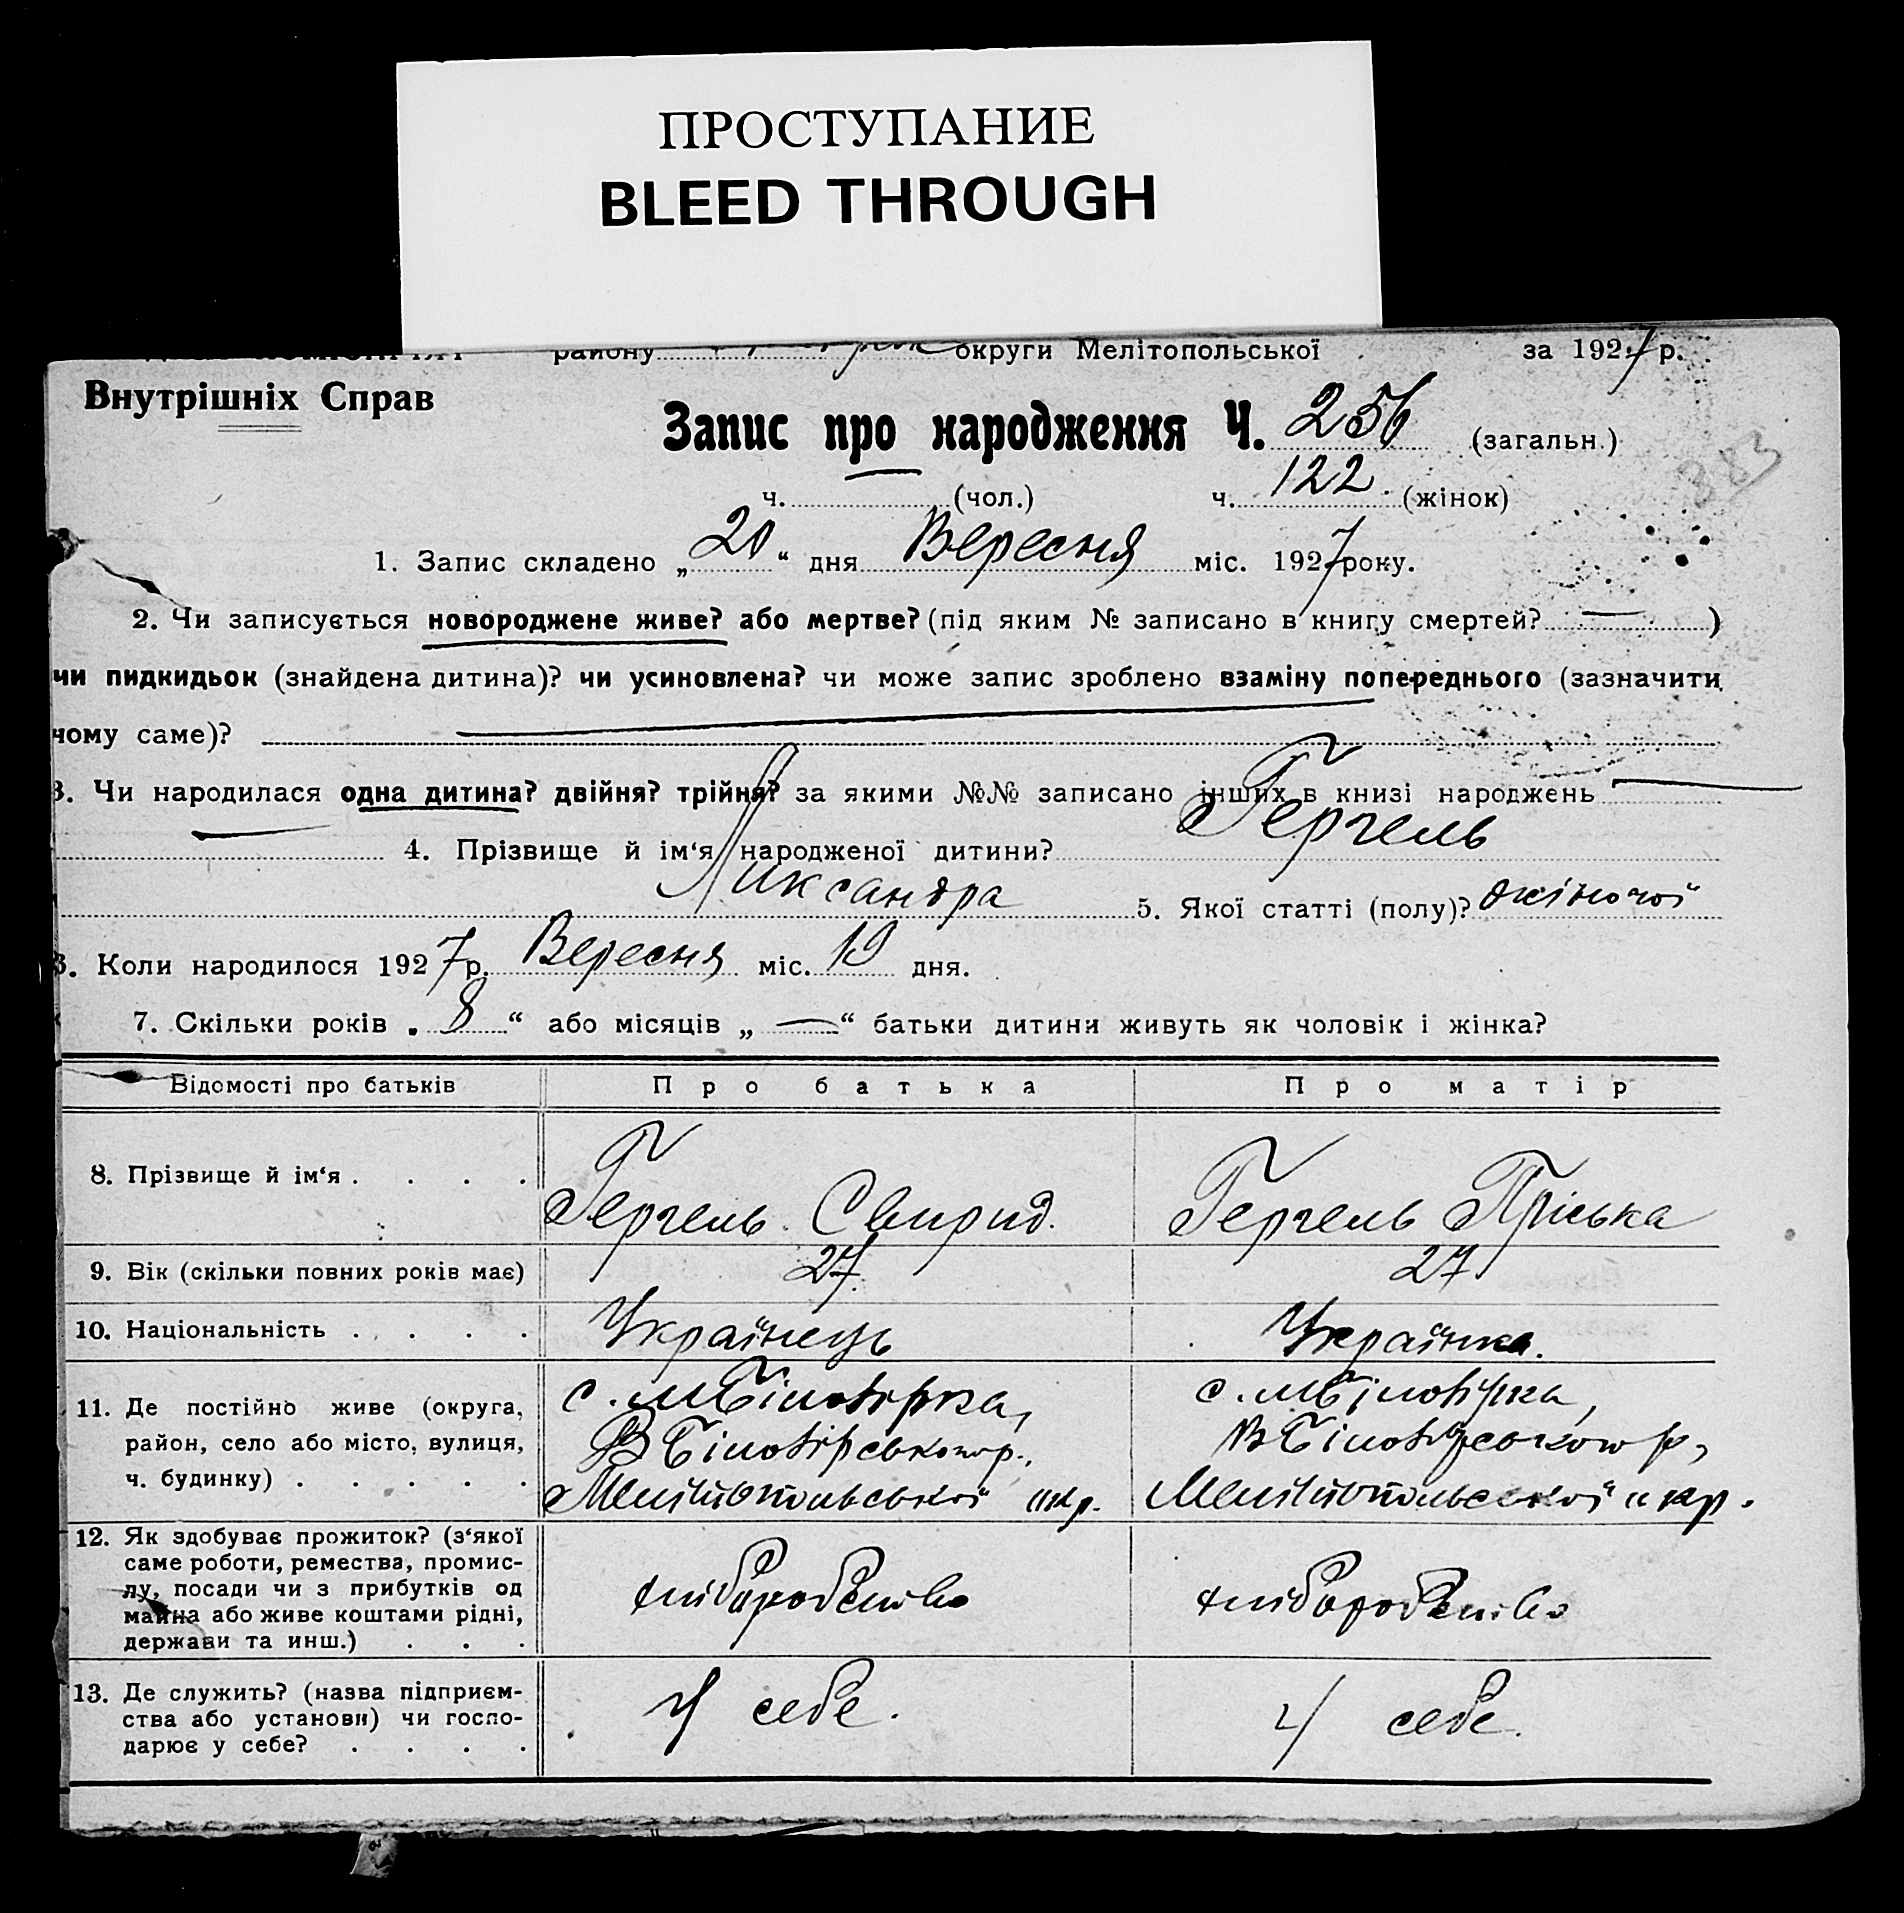 ПРОСТУПАНИЕ
BLEED THROUGH
району округи Мелітопольської за 1927 р.
Внутрішніх Справ
Запис про народження Ч. 256 (загальн.)
383
ч. (чол.) ч. 122 (жінок)
1. Запис складено „20“ дня Вересня міс. 1927 року.
2. Чи записується новороджене живе? або мертве? (під яким № записано в книгу смертей? — )
чи пидкидьок (знайдена дитина)? чи усиновлена? чи може запис зроблено взаміну попереднього (зазначити
чому саме)?
3. Чи народилася одна дитина? двійня? трійня? за якими №№ записано інших в книзі народжень —
— 4. Прізвище й ім‘я народженої дитини? Гергель
Ликсандра 5. Якої статті (полу)? жіночої
6. Коли народилося 1927 р. Вересня міс. 19 дня.
7. Скільки років „8“ або місяців „—“ батьки дитини живуть як чоловік і жінка?
Відомості про батьків Про батька Про матір
8. Прізвище й ім‘я . . . . Гергель Свирид. Гергель Пріська
9. Вік (скільки повних років має) 27 27
10. Національність . . . . Українець Українка.
11. Де постійно живе (округа,
район, село або місто, вулиця,
ч. будинку) . . . . .
с. М Білозірка,
В Білозірського р.,
Мелітопольської окр.
с. М Білозірка,
В Білозірського р,
Мелітопольської окр.
12. Як здобуває прожиток? (з‘якої
саме роботи, ремества, промис-
лу, посади чи з прибутків од
майна або живе коштами рідні,
держави та инш.) . . .
хліборобство
хліборобство
13. Де служить? (назва підприєм-
ства або установи) чи госпо-
дарює у себе? . . . .
У себе.
У себе.